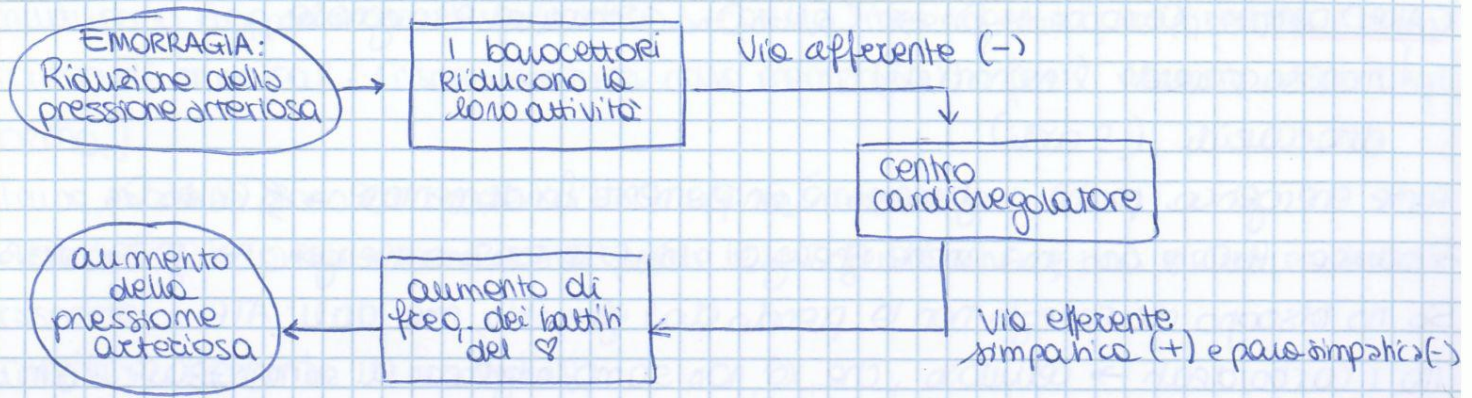 EMORRAGIA:
Riduzione della
pressione arteriosa
I barocettori
riducono la
loro attività
Via afferente (-)
centro
cardioregolatore
via efferente
simpatica (+) e parasimpatica (-)
aumento di
freq. dei battiti
del ♡
aumento
della
pressione
arteriosa